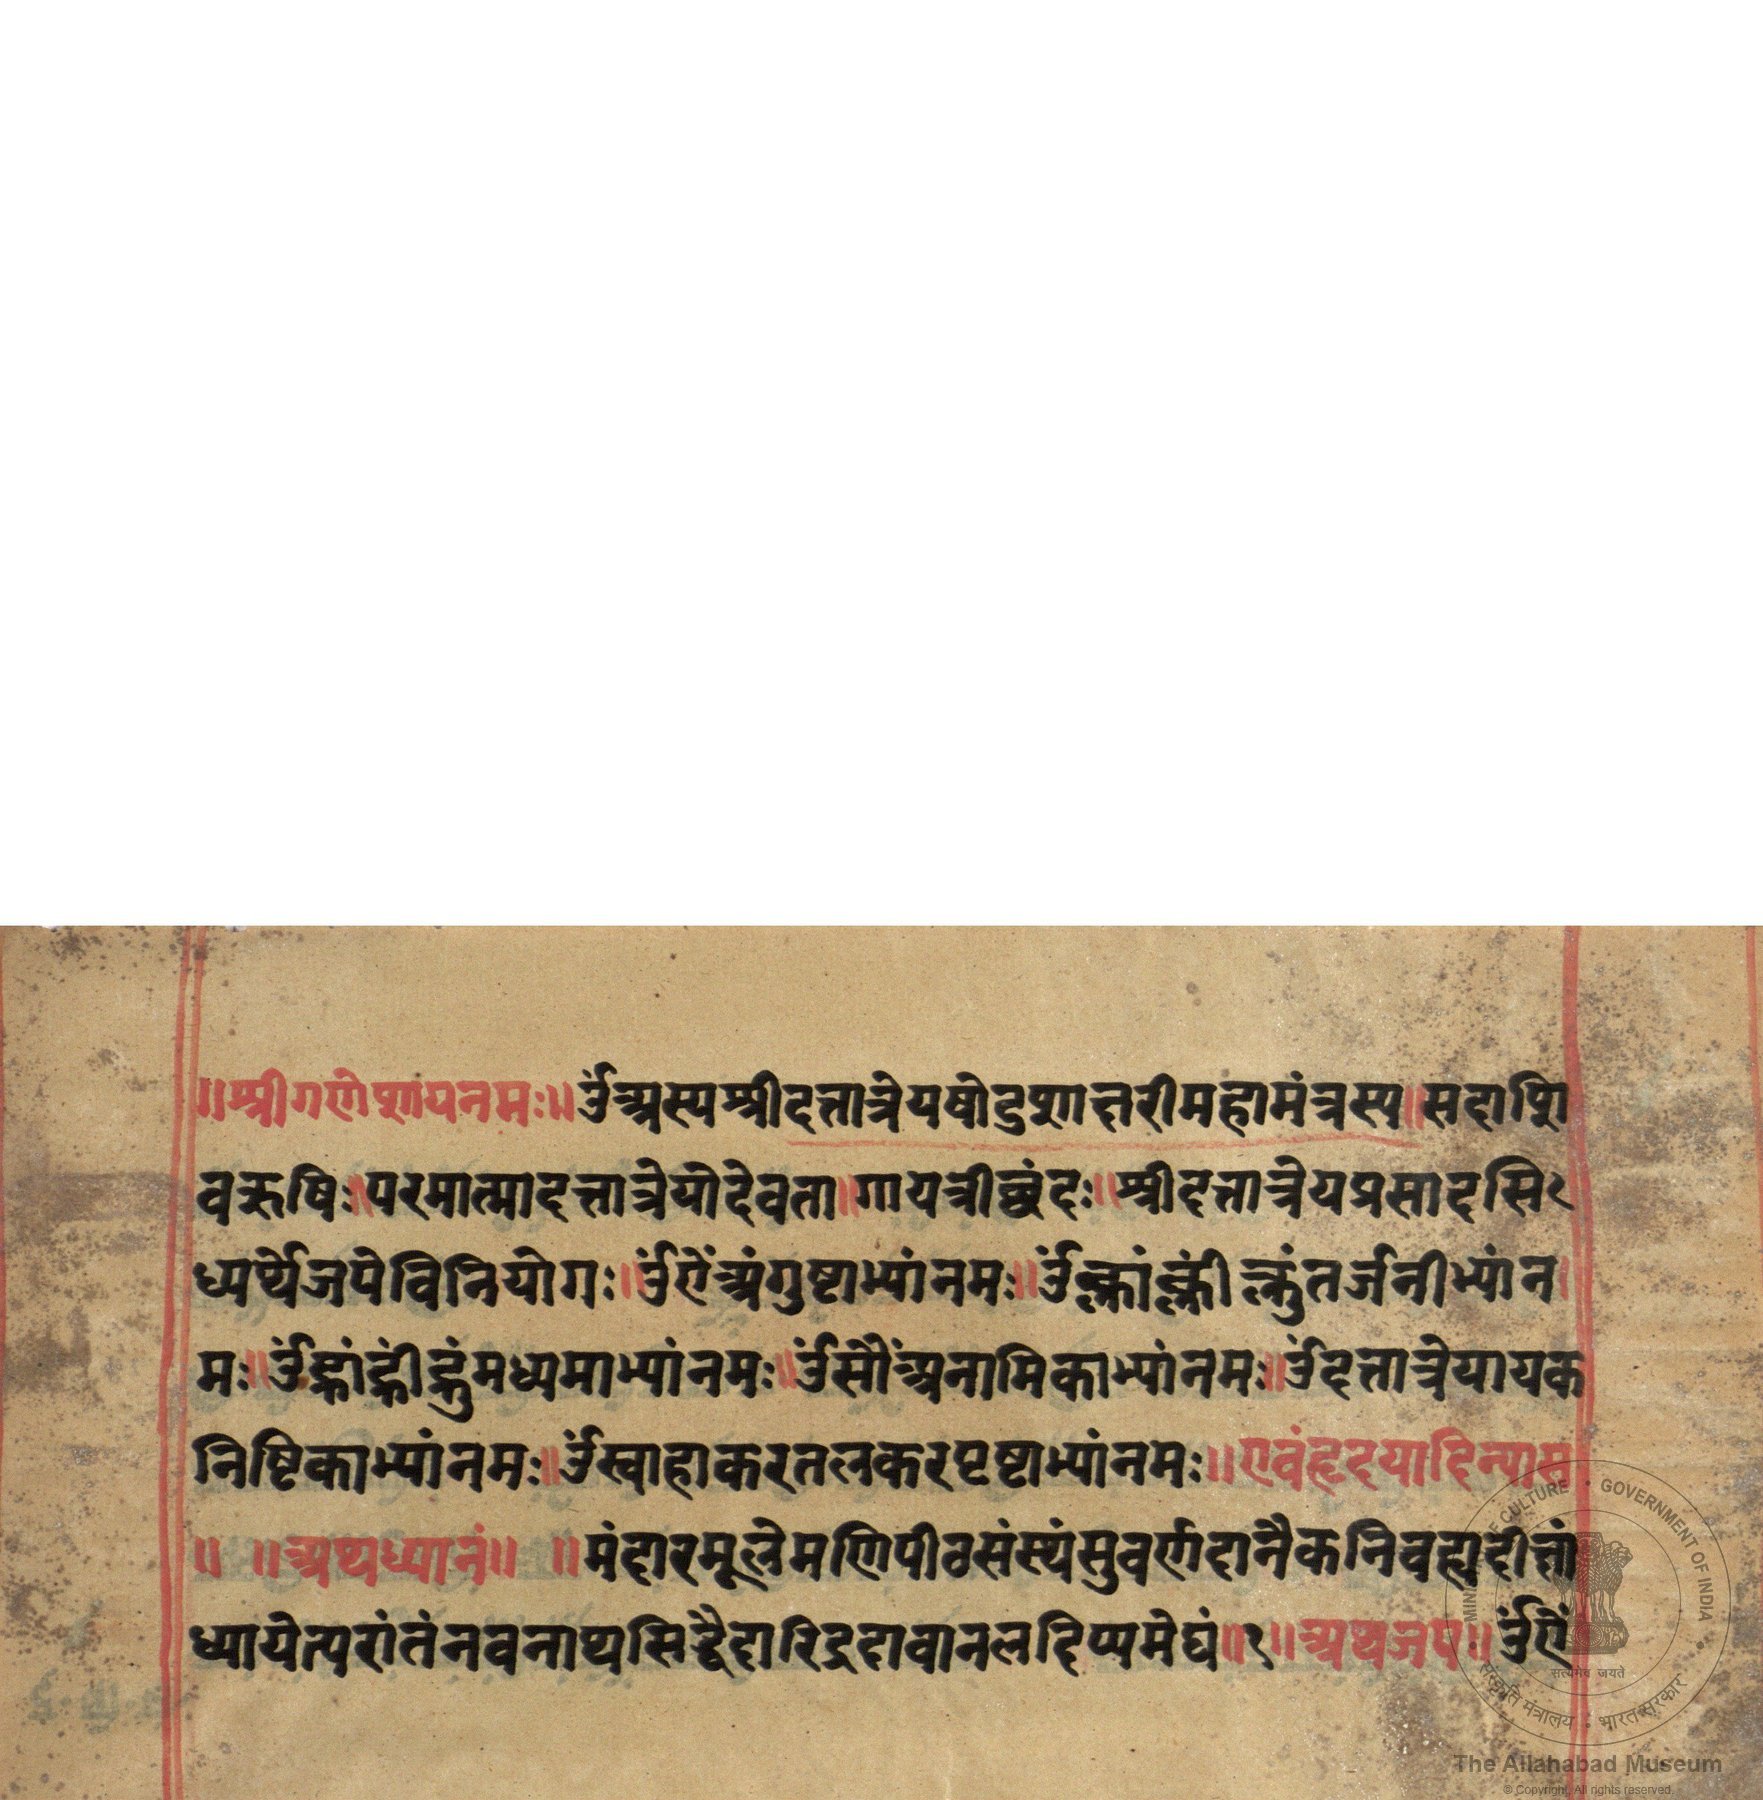 ॥श्रीगणेशायनमः॥ॐअस्यश्रीदत्तात्रेयषोडशाक्षरीमहामंत्रस्य॥सदाशि
वऋषिः॥परमात्मादत्तात्रेयोदेवता॥गायत्रीछंदः॥श्रीदत्तात्रेयप्रसादसि२
ध्यर्थेजपेविनियोगः॥ॐऐंअंगुष्टाभ्यांनमः॥ॐक्लांक्लींक्लुंतर्जनीभ्यांन
मः॥ॐह्रांह्रींह्रुंमध्यमाभ्यांनमः॥ॐसौंअनामिकाभ्यांनमः॥ॐदत्तात्रेयायक
निष्टिकाभ्यांनमः॥ॐस्वाहाकरतलकरपृष्टाभ्यांनमः॥एवंहृदयादिन्यास
॥ ॥अथध्यानं॥ ॥मंदारमूलेमणिपीठसंस्थंसुवर्णदानैकनिबद्धदीक्षां
ध्यायेत्परांतंनवनाथसिद्धैदारिद्रदावानलदिप्यमेघं॥१॥अथजप॥ॐऐं
संस्कृति मंत्रालय • भारत सरकार
MINISTRY OF CULTURE • GOVERNMENT OF INDIA
सत्यमेव जयते
The Allahabad Museum
© Copyright. All rights reserved.